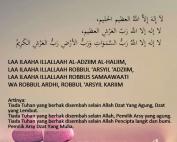 لَا إِلَهَ إِلَّا اللَّهُ الْعَظِيمُ الْحَلِيمُ،
لَا إِلَهَ إِلَّا اللَّهُ رَبُّ الْعَرْشِ الْعَظِيمِ
لَا إِلَهَ إِلَّا اللَّهُ رَبُّ السَّمَوَاتِ وَرَبُّ الْأَرْضِ رَبُّ الْعَرْشِ الْكَرِيمُ
LAA ILAAHA ILLALLAAH AL-ADZIIM AL-HALIIM,
LAA ILAAHA ILLALLAAH ROBBUL 'ARSYIL 'ADZIIM,
LAA ILAAHA ILLALLAAH ROBBUS SAMAAWAATI
WA ROBBUL ARDHI, ROBBUL 'ARSYIL KARIIM
Artinya:
Tiada Tuhan yang berhak disembah selain Allah Dzat Yang Agung, Dzat
yang Lembut.
Tiada Tuhan yang berhak disembah selain Allah, Pemilik Arsy yang agung.
Tiada Tuhan yang berhak disembah selain Allah Pencipta langit dan bumi.
Pemilik Arsy Dzat Yang Mulia.